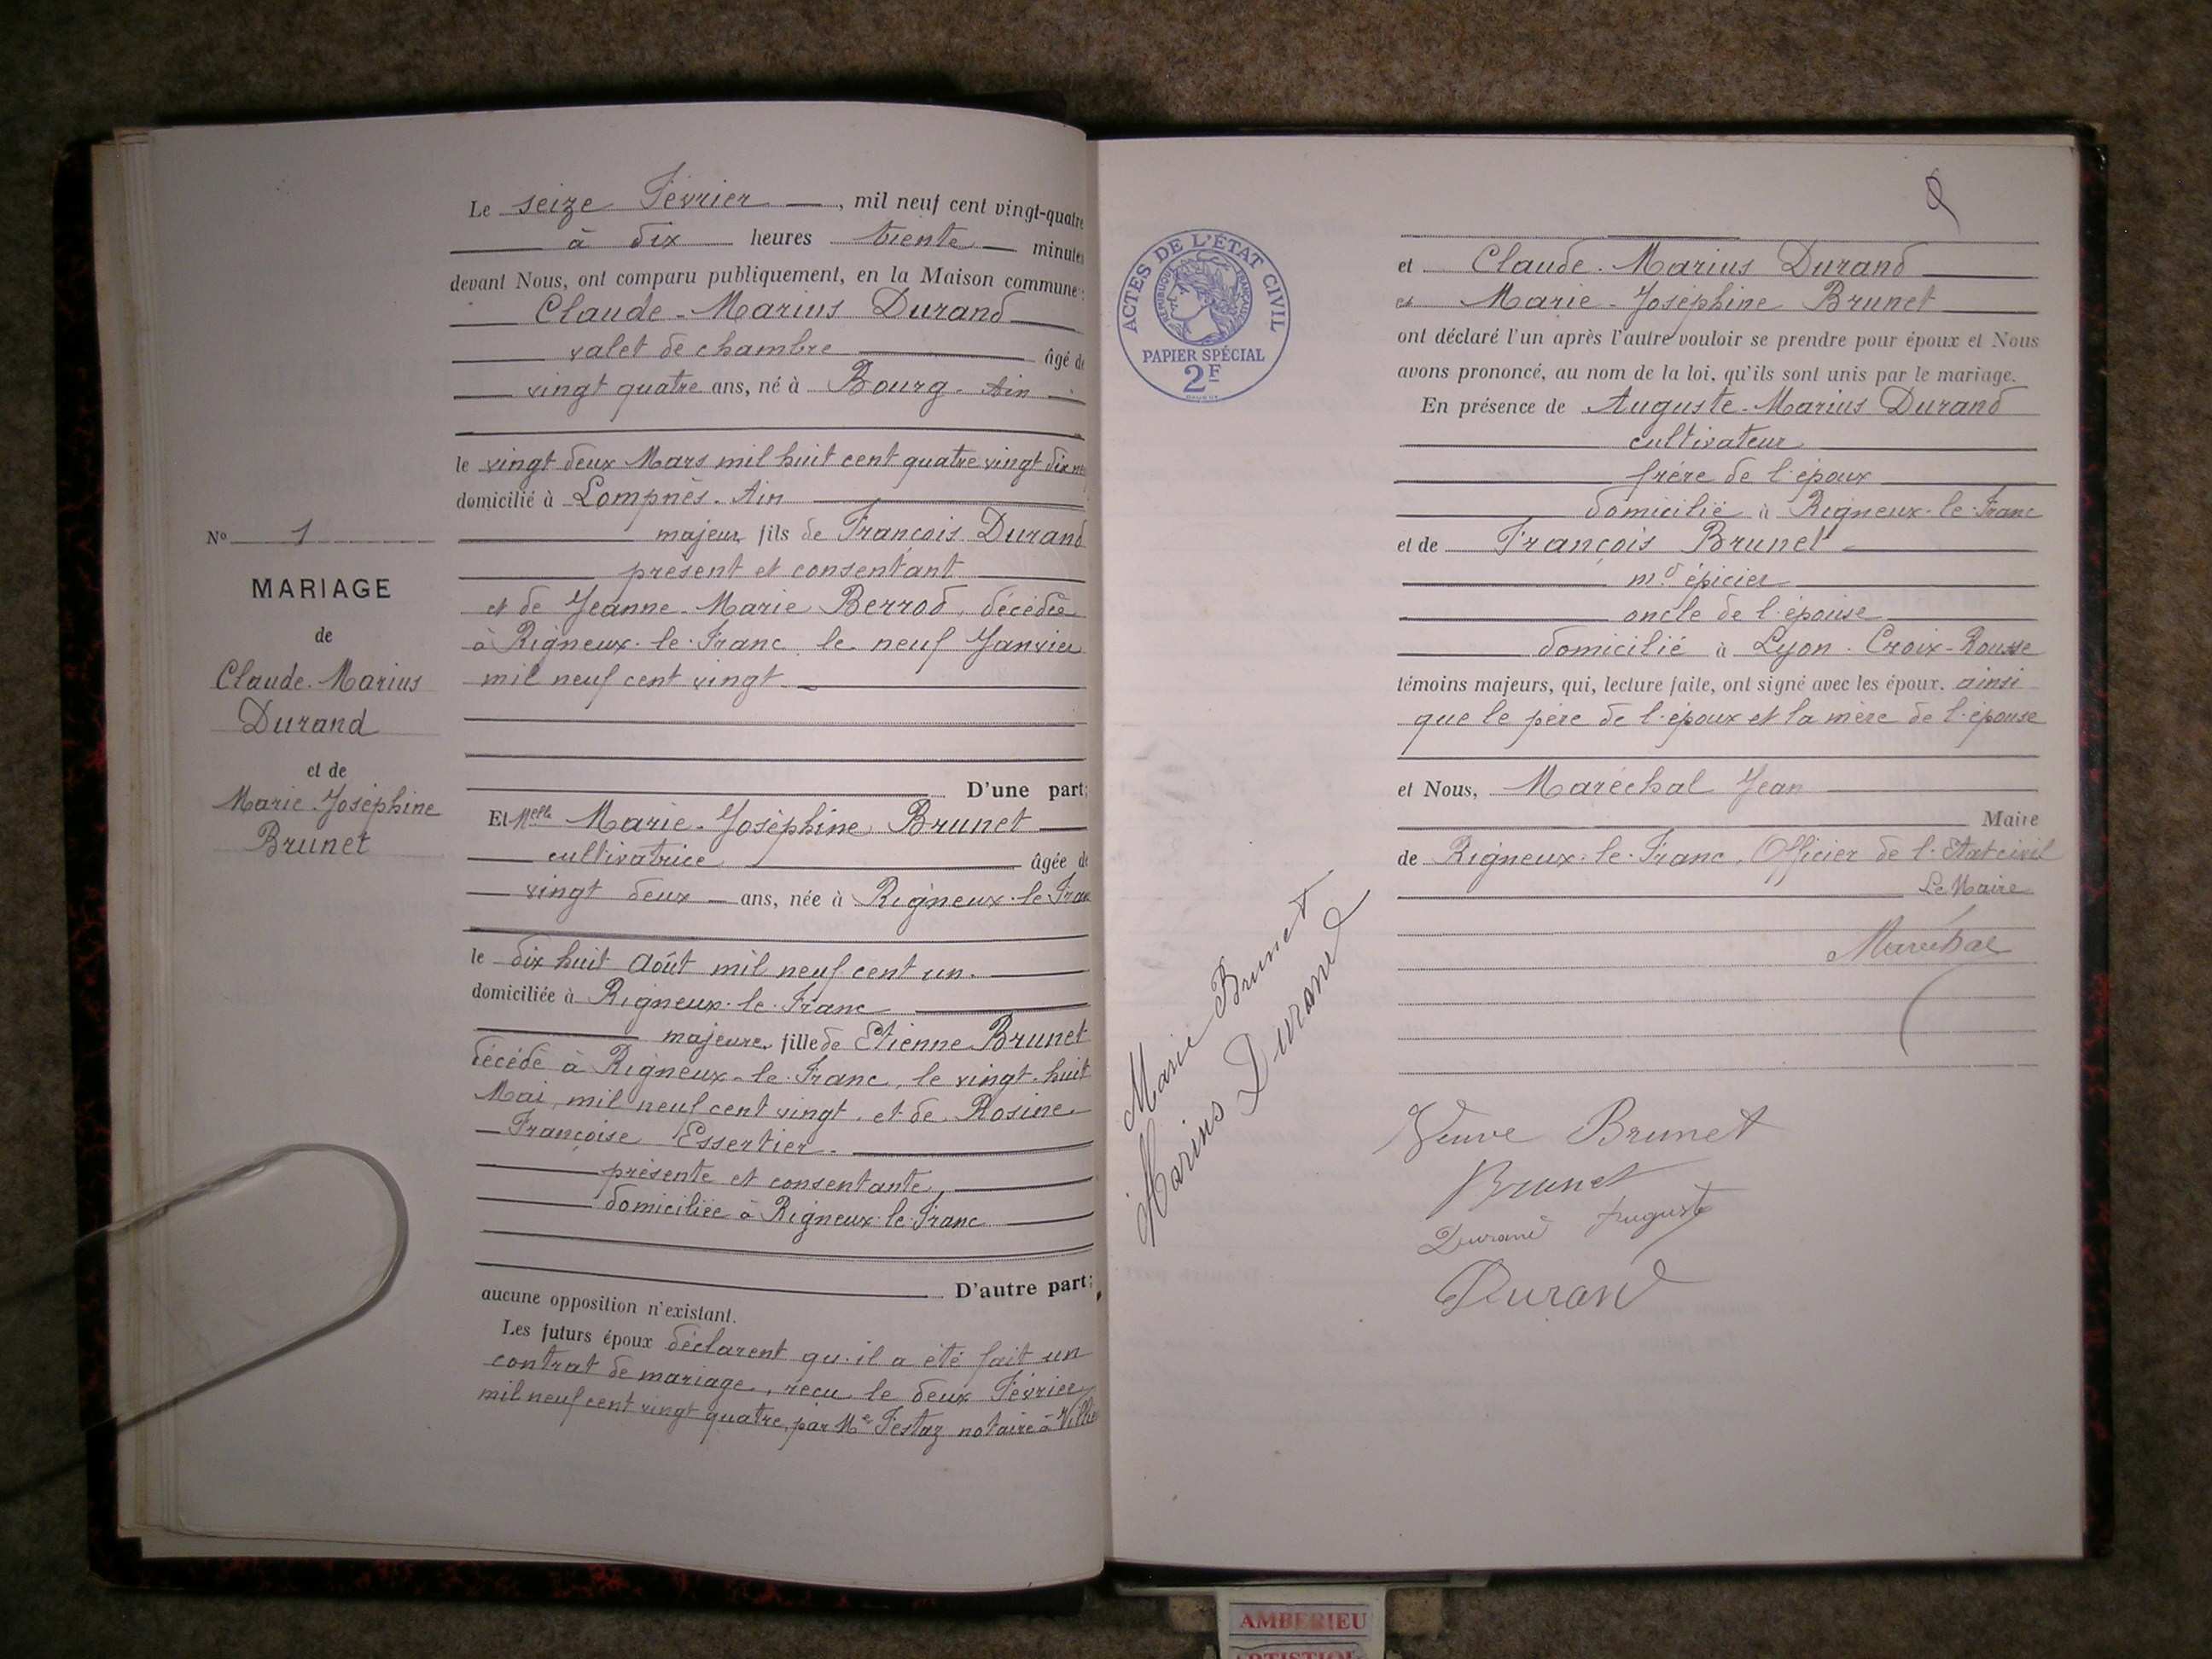 Le seize Février, mil neuf cent vingt-quatre
à dix heures trente minutes
devant Nous, ont comparu publiquement, en la Maison commune:
Claude-Marius Durand
valet de chambre âgé de
vingt quatre ans, né à Bourg-Ain
le vingt deux Mars mil huit cent quatre vingt dix
domicilié à Lompnès-Ain
majeur, fils de François Durand
présent et consentant
et de Jeanne-Marie Berrod, décédée
à Rigneux-le-Franc, le neuf Janvier
mil neuf cent vingt
D'une part;
Et Melle Marie-Joséphine Brunet
cultivatrice âgée de
vingt deux ans, née à Rigneux-le-Franc
le dix huit Août mil neuf cent un.
domiciliée à Rigneux-le-Franc
majeure, fille de Etienne Brunet
décédé à Rigneux-le-Franc, le vingt-huit
Mai, mil neuf cent vingt, et de Rosine
Françoise Essertier.
présente et consentante,
domiciliée à Rigneux-le-Franc
D'autre part;
aucune opposition n'existant.
Les futurs époux déclarent qu'il a été fait un
contrat de mariage, reçu le deux Février
mil neuf cent vingt quatre, par Me Festaz notaire à
No 1
MARIAGE
de
Claude-Marius
Durand
et de
Marie-Joséphine
Brunet
ACTES DE L'ÉTAT CIVIL
RÉPUBLIQUE FRANÇAISE
PAPIER SPÉCIAL
2F
et Claude-Marius Durand
et Marie-Joséphine Brunet
ont déclaré l'un après l'autre vouloir se prendre pour époux et Nous
avons prononcé, au nom de la loi, qu'ils sont unis par le mariage.
En présence de Auguste-Marius Durand
cultivateur
frère de l'époux
domicilié à Rigneux-le-Franc
et de François Brunet
md épicier
oncle de l'épouse
domicilié à Lyon-Croix-Rousse
témoins majeurs, qui, lecture faite, ont signé avec les époux, ainsi
que le père de l'époux et la mère de l'épouse
et Nous, Maréchal Jean
Maire
de Rigneux-le-Franc, Officier de l'Etat civil
Le Maire
Maréchal
Marie Brunet
Marius Durand
Veuve Brunet
Brunet
Durand Auguste
Durand
AMBERIEU
ARTISTIQUE